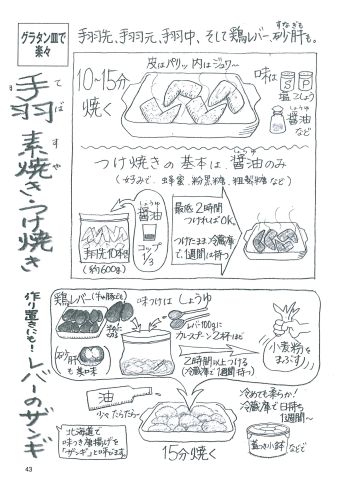 グラタン皿で
楽々
手羽先、手羽元、手羽中、そして鶏レバー、砂肝も。
すなぎも
手羽
てば
素焼き・つけ焼き
すや
10〜15分
焼く
皮はパリッ、内はジュワ〜
味は
S P
塩 こしょう
しょうゆ
醤油
など
つけ焼きの基本は醤油のみ
しょうゆ
(好みで、蜂蜜、粉黒糖、粗製糖など)
しょうゆ
醤油
コップ
1/3
手羽先10本
(約600g)
最低2時間
つければOK。
つけたまま、冷蔵庫
で、1週間は持つ
作り置きにも!
レバーのザンギ
鶏レバー
味つけはしょうゆ
レバー100gに
カレースプーン2杯 1まで
砂肝
も美味
2時間以上つける
(冷蔵庫で1週間持つ)
小麦粉を
まぶす
油
少々たらたら〜
冷めても柔らか!
冷蔵庫で日持ち
1週間〜
北海道で
味つき唐揚げを
「ザンギ」と呼びます。
15分焼く
蓋つき小鉢
などで
43